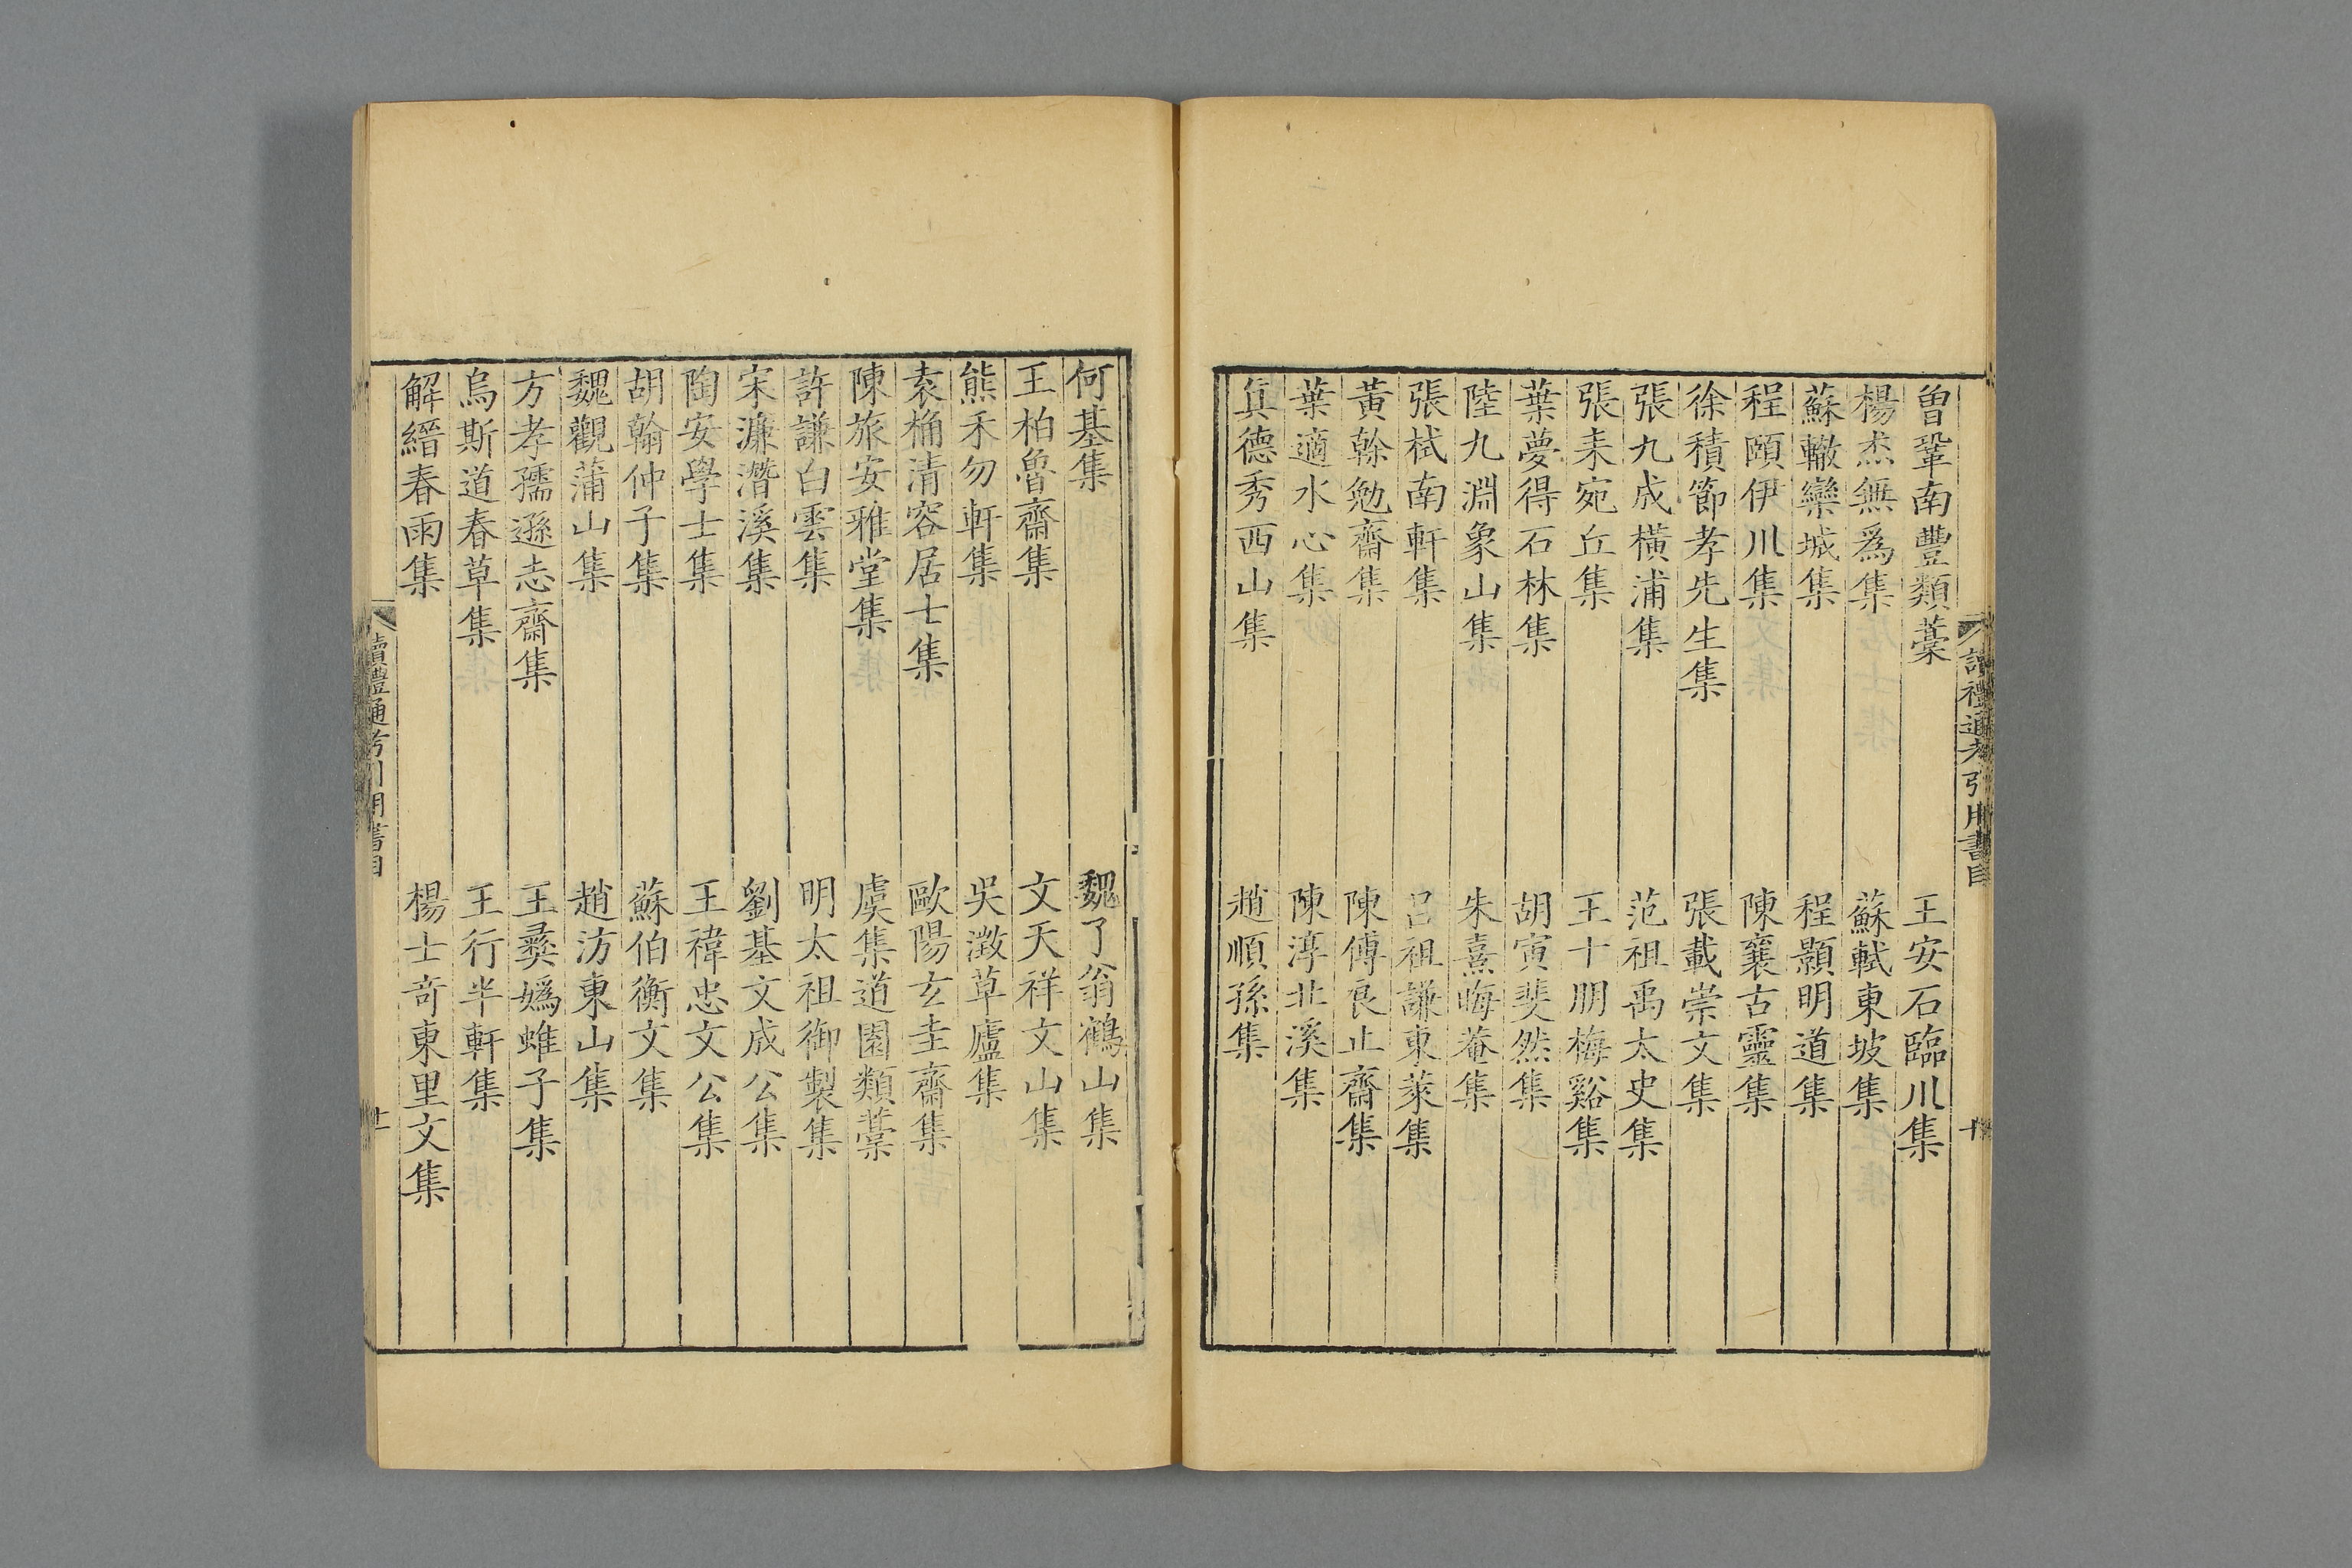 讀禮通考引用書目
十
曾鞏南豐類藁　王安石臨川集
楊杰無爲集　蘇軾東坡集
蘇轍欒城集　程顥明道集
程頤伊川集　陳襄古靈集
徐積節孝先生集　張載崇文集
張九成橫浦集　范祖禹太史集
張耒宛丘集　王十朋梅谿集
葉夢得石林集　胡寅斐然集
陸九淵象山集　朱熹晦菴集
張栻南軒集　呂祖謙東萊集
黃榦勉齋集　陳傅良止齋集
葉適水心集　陳淳北溪集
眞德秀西山集　趙順孫集
何基集　魏了翁鶴山集
王柏魯齋集　文天祥文山集
熊禾勿軒集　吳澂草廬集
袁桷清容居士集　歐陽玄圭齋集
陳旅安雅堂集　虞集道園類藁
許謙白雲集　明太祖御製集
宋濂潛溪集　劉基文成公集
陶安學士集　王禕忠文公集
胡翰仲子集　蘇伯衡文集
魏觀蒲山集　趙汸東山集
方孝孺遜志齋集　王彝嬀蜼子集
烏斯道春草集　王行半軒集
解縉春雨集　楊士奇東里文集
讀禮通考引用書目